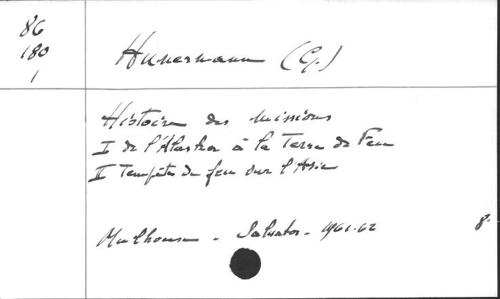 86
180
1
Hunermann (G.)
Histoire des missions
I de l'Alaska à la Terre de Feu
II Tempêtes de feu sur l'Asie
Mulhouse - Salvator - 1961-62
8.